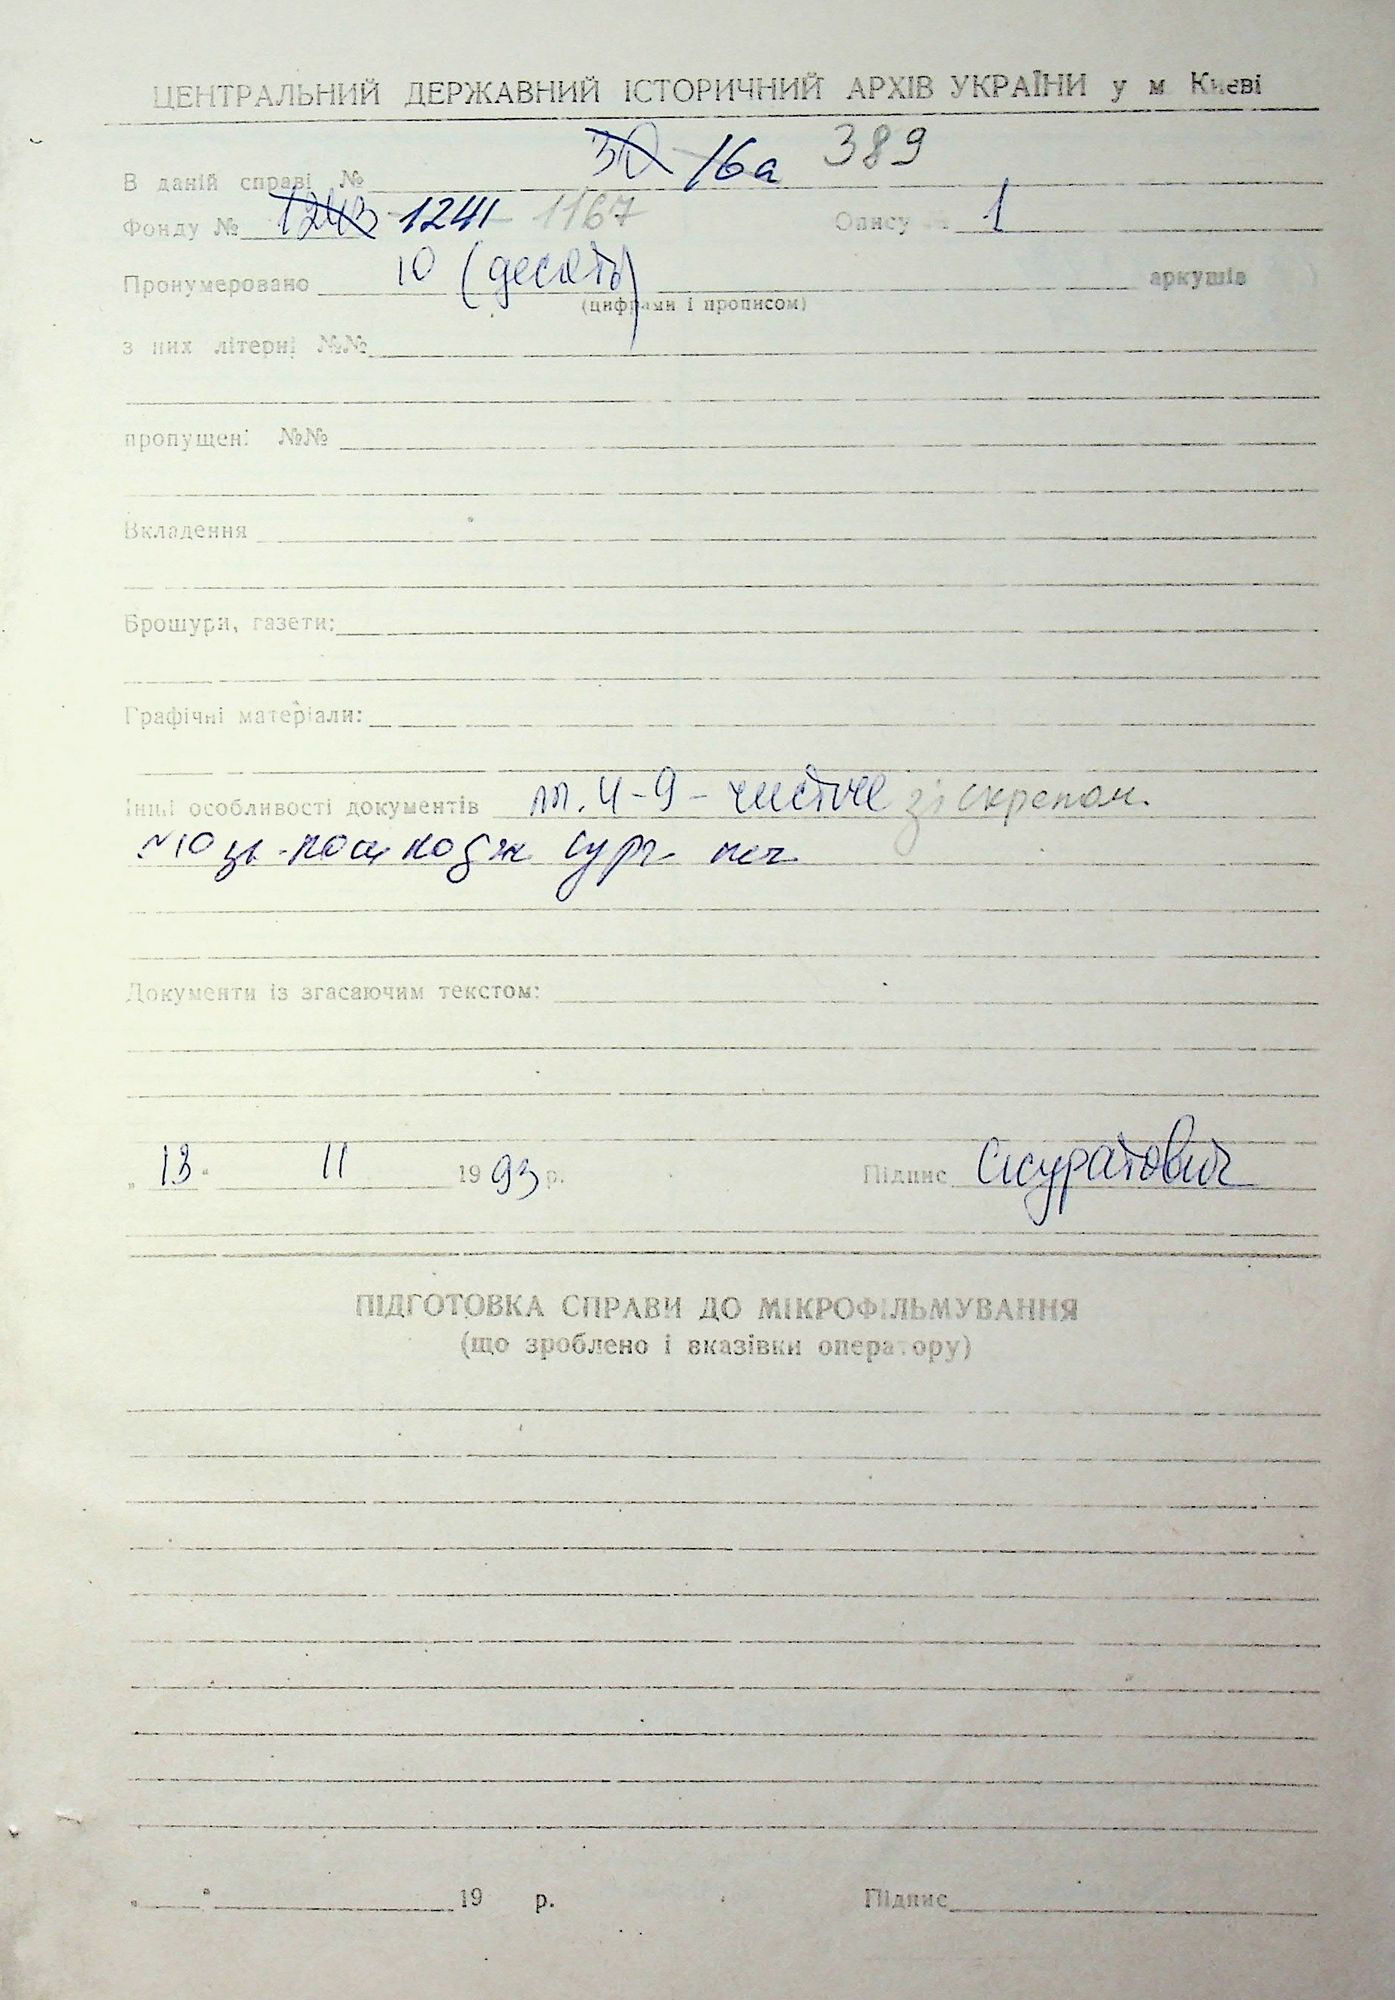 ЦЕНТРАЛЬНИЙ ДЕРЖАВНИЙ ІСТОРИЧНИЙ АРХІВ УКРАЇНИ у м Києві
В даній справі № 30 16а 389
Фонду № 1243 - 1241 - 1167 Опису № 1
Пронумеровано 10 (десять) аркушів
(цифрами і прописом)
з них літерні №№
пропущені №№
Вкладення
Брошури, газети:
Графічні матеріали:
Інші особливості документів 4-9 - чисті зі скрепом.
сург. печ.
Документи із згасаючим текстом:
„ 13 “ 11 19 93 р. Підпис Скуратович
ПІДГОТОВКА СПРАВИ ДО МІКРОФІЛЬМУВАННЯ
(що зроблено і вказівки оператору)
„ “ 19 р. Підпис